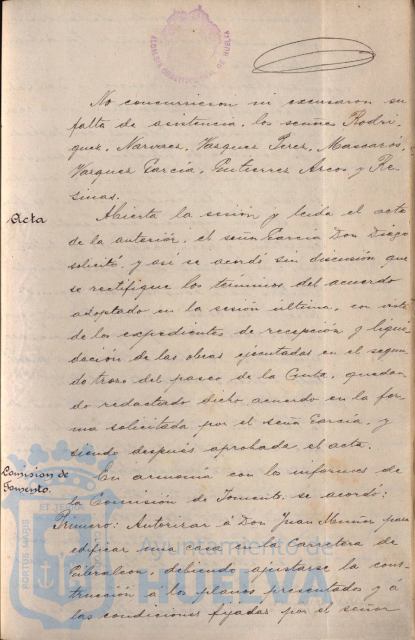 ALCALDIA CONSTITUCIONAL DE HUELVA
No concurrieron ni excusaron su
falta de asistencia, los señores Rodri-
guez, Narvaez, Vazquez Perez, Mascarós,
Vazquez García, Gutierrez Arcos y Re-
sinas.
Acta
Abierta la sesión y leida el acta
de la anterior, el señor García Don Diego
solicitó, y así se acordó sin discusión que
se rectifique los términos del acuerdo
adoptado en la sesión última, con vista
de los expedientes de recepción y liqui-
dación de las obras ejecutadas en el segun-
do trozo del paseo de la Cinta, quedan-
do redactado dicho acuerdo en la for-
ma solicitada por el señor García, y
siendo después aprobada el acta.
Comision de
Fomento.
En armonía con los informes de
la Comisión de Fomento, se acordó:
Primero: Autorizar á Don Juan Muñoz para
edificar una casa en la Carretera de
Gibraleon, debiendo ajustarse la cons-
trucción a los planos presentados y á
las condiciones fijadas por el señor
PORTUS MARIS
Ayuntamiento de
HUELVA